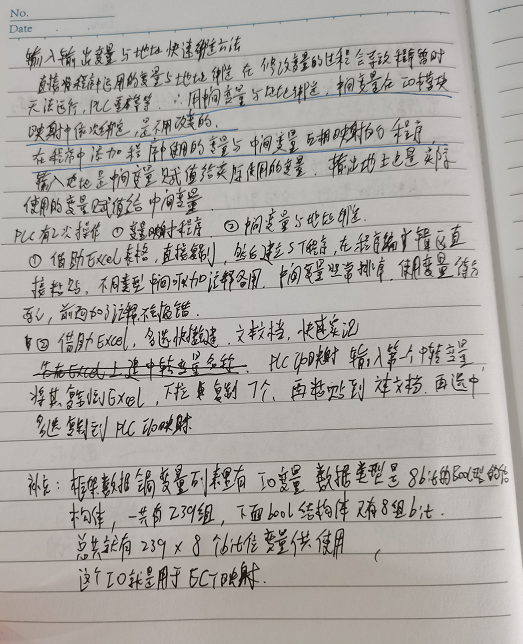 No.
Date
输入输出变量与地址快速绑定方法
直接将程序中运用的变量与地址绑定 在修改变量的过程会导致程序暂时
无法运行,PLC要等等 ∴用中间变量与地址绑定,中间变量在IO模块
映射中依次绑定,是不用改变的.
在程序中添加程序中使用的变量与中间变量互相映射的程序
输入地址是中间变量赋值给实际使用的变量. 输出功上也是实际
使用的变量赋值给中间变量
PLC有2次操作 ①变量映射程序 ②中间变量与地址绑定.
① 借助Excel表格,直接复制,然后建立ST程序,在程序编辑区直
接粘贴,不同类型中间可以加注释备用,中间变量照常排序,使用变量
配,前面加了注释不会报错.
② 借助Excel,多选快捷建,文本文档,快速实现
PLC IO映射 输入第一个中转变量
将其复制到Excel,下拉复制7个,再粘贴到文本文档,再选中
多选复制到PLC IO映射.
补充:框架数据 变量列表里有IO变量 数据类型是8bit的Bool型的结
构体,一共有239组,下面bool结构体又有8组bit.
总共就有239×8个bit位变量供使用
这个IO就是用于ECT映射.